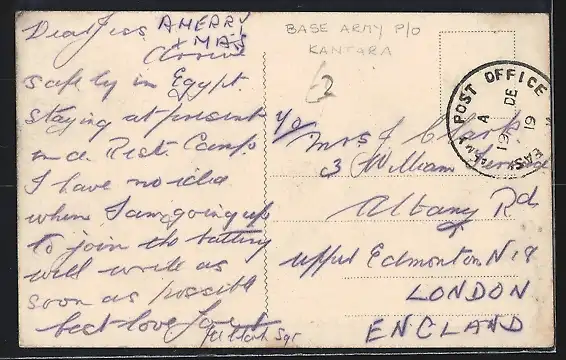 Dear Jess A MERRY
XMAS
Arrive
safely in Egypt.
staying at present
in a Rest Camp.
I have no idea
when I am going up
to join the battery
will write as
soon as possible
best love
Sgt
BASE ARMY P/O
KANTARA
POST OFFICE
A
DE
19
Mrs J Clark
3 William
Albany Rd
Upper Edmonton N.18
LONDON
ENGLAND